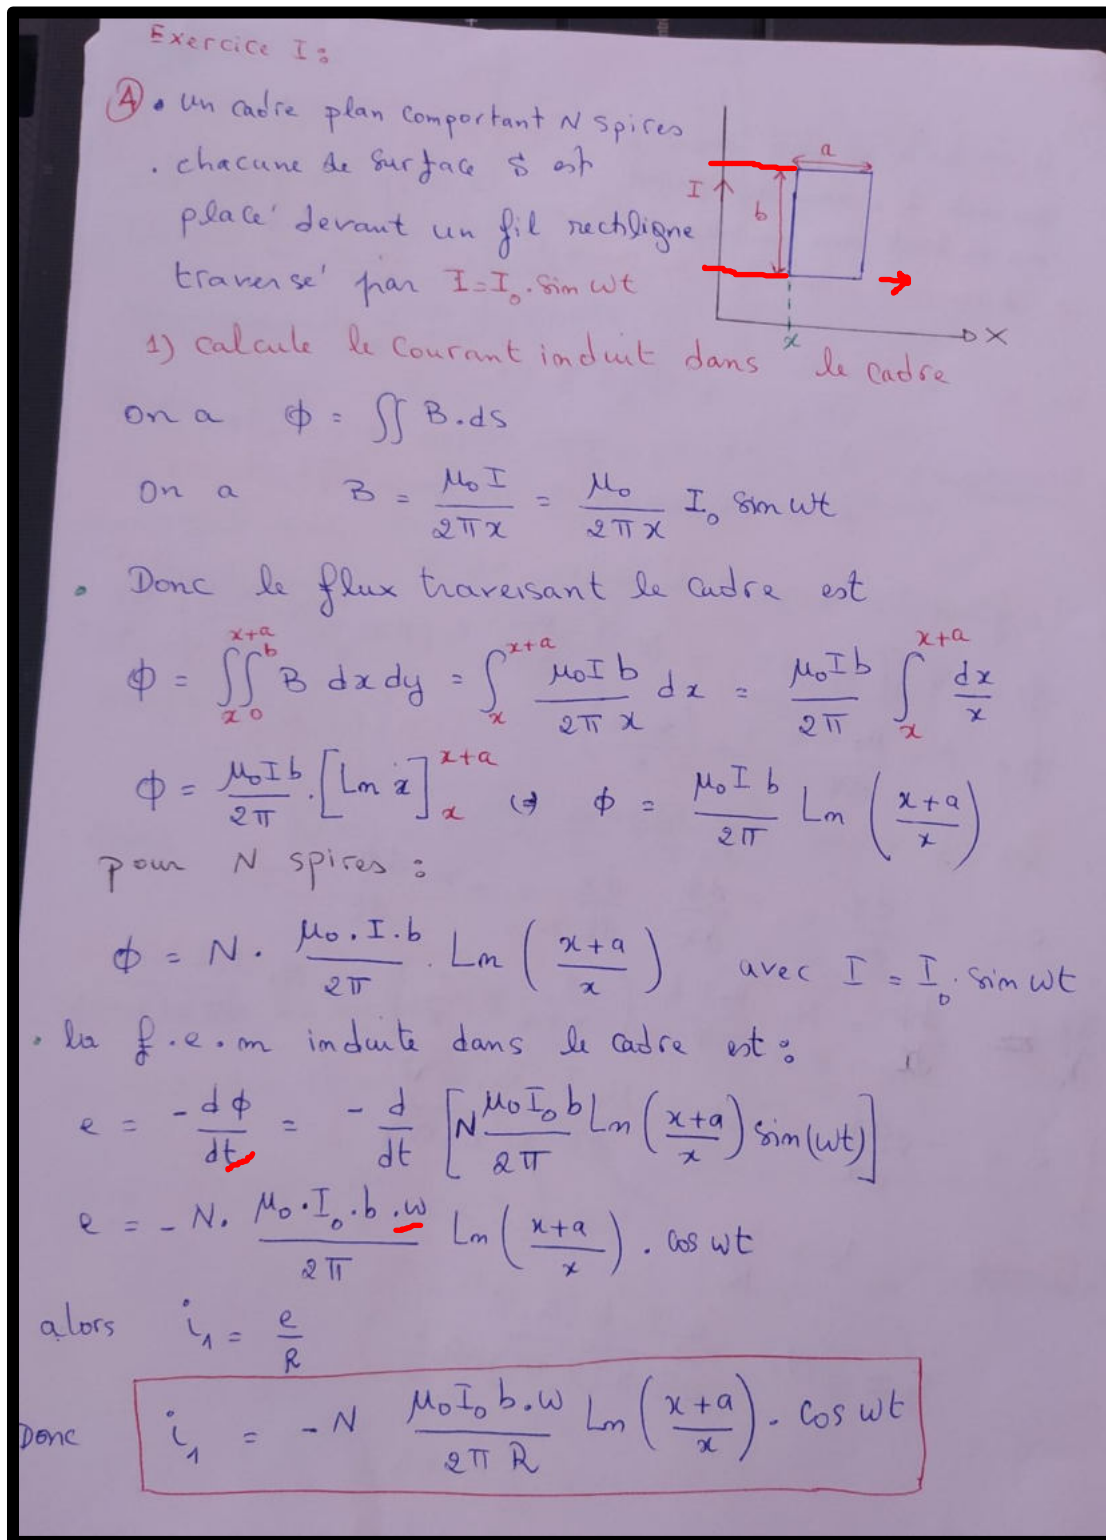 Exercice I :
A • Un cadre plan comportant N spires
. chacune de surface S est
placé devant un fil rectiligne
traversé par I = I₀ . sin wt
I
a
b
x
X
1) calcule le courant induit dans le cadre
On a ϕ = ∬ B . ds
On a B = μ₀ I / 2π x = μ₀ / 2π x I₀ sin wt
• Donc le flux traversant le cadre est
ϕ = ∫ₓˣ⁺ᵃ ∫₀ᵇ B dx dy = ∫ₓˣ⁺ᵃ μ₀ I b / 2π x dx = μ₀ I b / 2π ∫ₓˣ⁺ᵃ dx / x
ϕ = μ₀ I b / 2π . [Ln x]ₓˣ⁺ᵃ ⇔ ϕ = μ₀ I b / 2π Ln (x+a / x)
pour N spires :
ϕ = N . μ₀ . I . b / 2π . Ln (x+a / x) avec I = I₀ . sin wt
• la f.e.m induite dans le cadre est :
e = - dϕ / dt = - d / dt [N μ₀ I₀ b / 2π Ln (x+a / x) sin(wt)]
e = - N . μ₀ . I₀ . b . w / 2π Ln (x+a / x) . cos wt
alors i₁ = e / R
Donc i₁ = - N μ₀ I₀ b . w / 2π R Ln (x+a / x) . cos wt